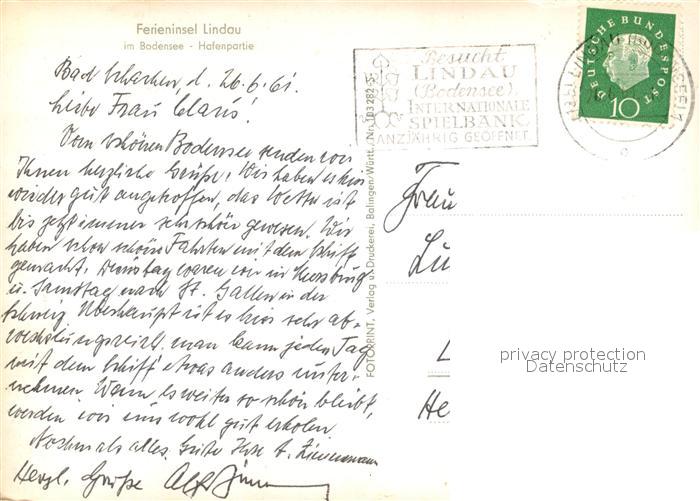 Ferieninsel Lindau
im Bodensee - Hafenpartie
Bad Schachen, d. 26.6.61.
Liebe Frau Claus!
Vom schönen Bodensee senden wir
Ihnen herzliche Grüße! Wir haben es hier
wieder gut angetroffen, das Wetter ist
bis jetzt immer sehr schön gewesen. Wir
haben schon schöne Fahrten mit dem Schiff
gemacht. Dienstag waren wir in Meersburg
u. Samstag nach St. Gallen in der
Schweiz. Überhaupt ist es hier sehr ab-
wechslungsreich. man kann jeden Tag
mit dem Schiff etwas anders unter-
nehmen. Wenn es weiter so schön bleibt,
werden wir uns wohl gut erholen.
Nochmals alles Gute Ihre A. Zimmermann
Herzl. Grüße
FOTOPRINT, Verlag u. Druckerei, Balingen/Württ. Nr. 103 282
Besucht
LINDAU
(Bodensee)
INTERNATIONALE
SPIELBANK
GANZJÄHRIG GEÖFFNET
DEUTSCHE BUNDESPOST
10
Frau
Lu
L
He
privacy protection
Datenschutz